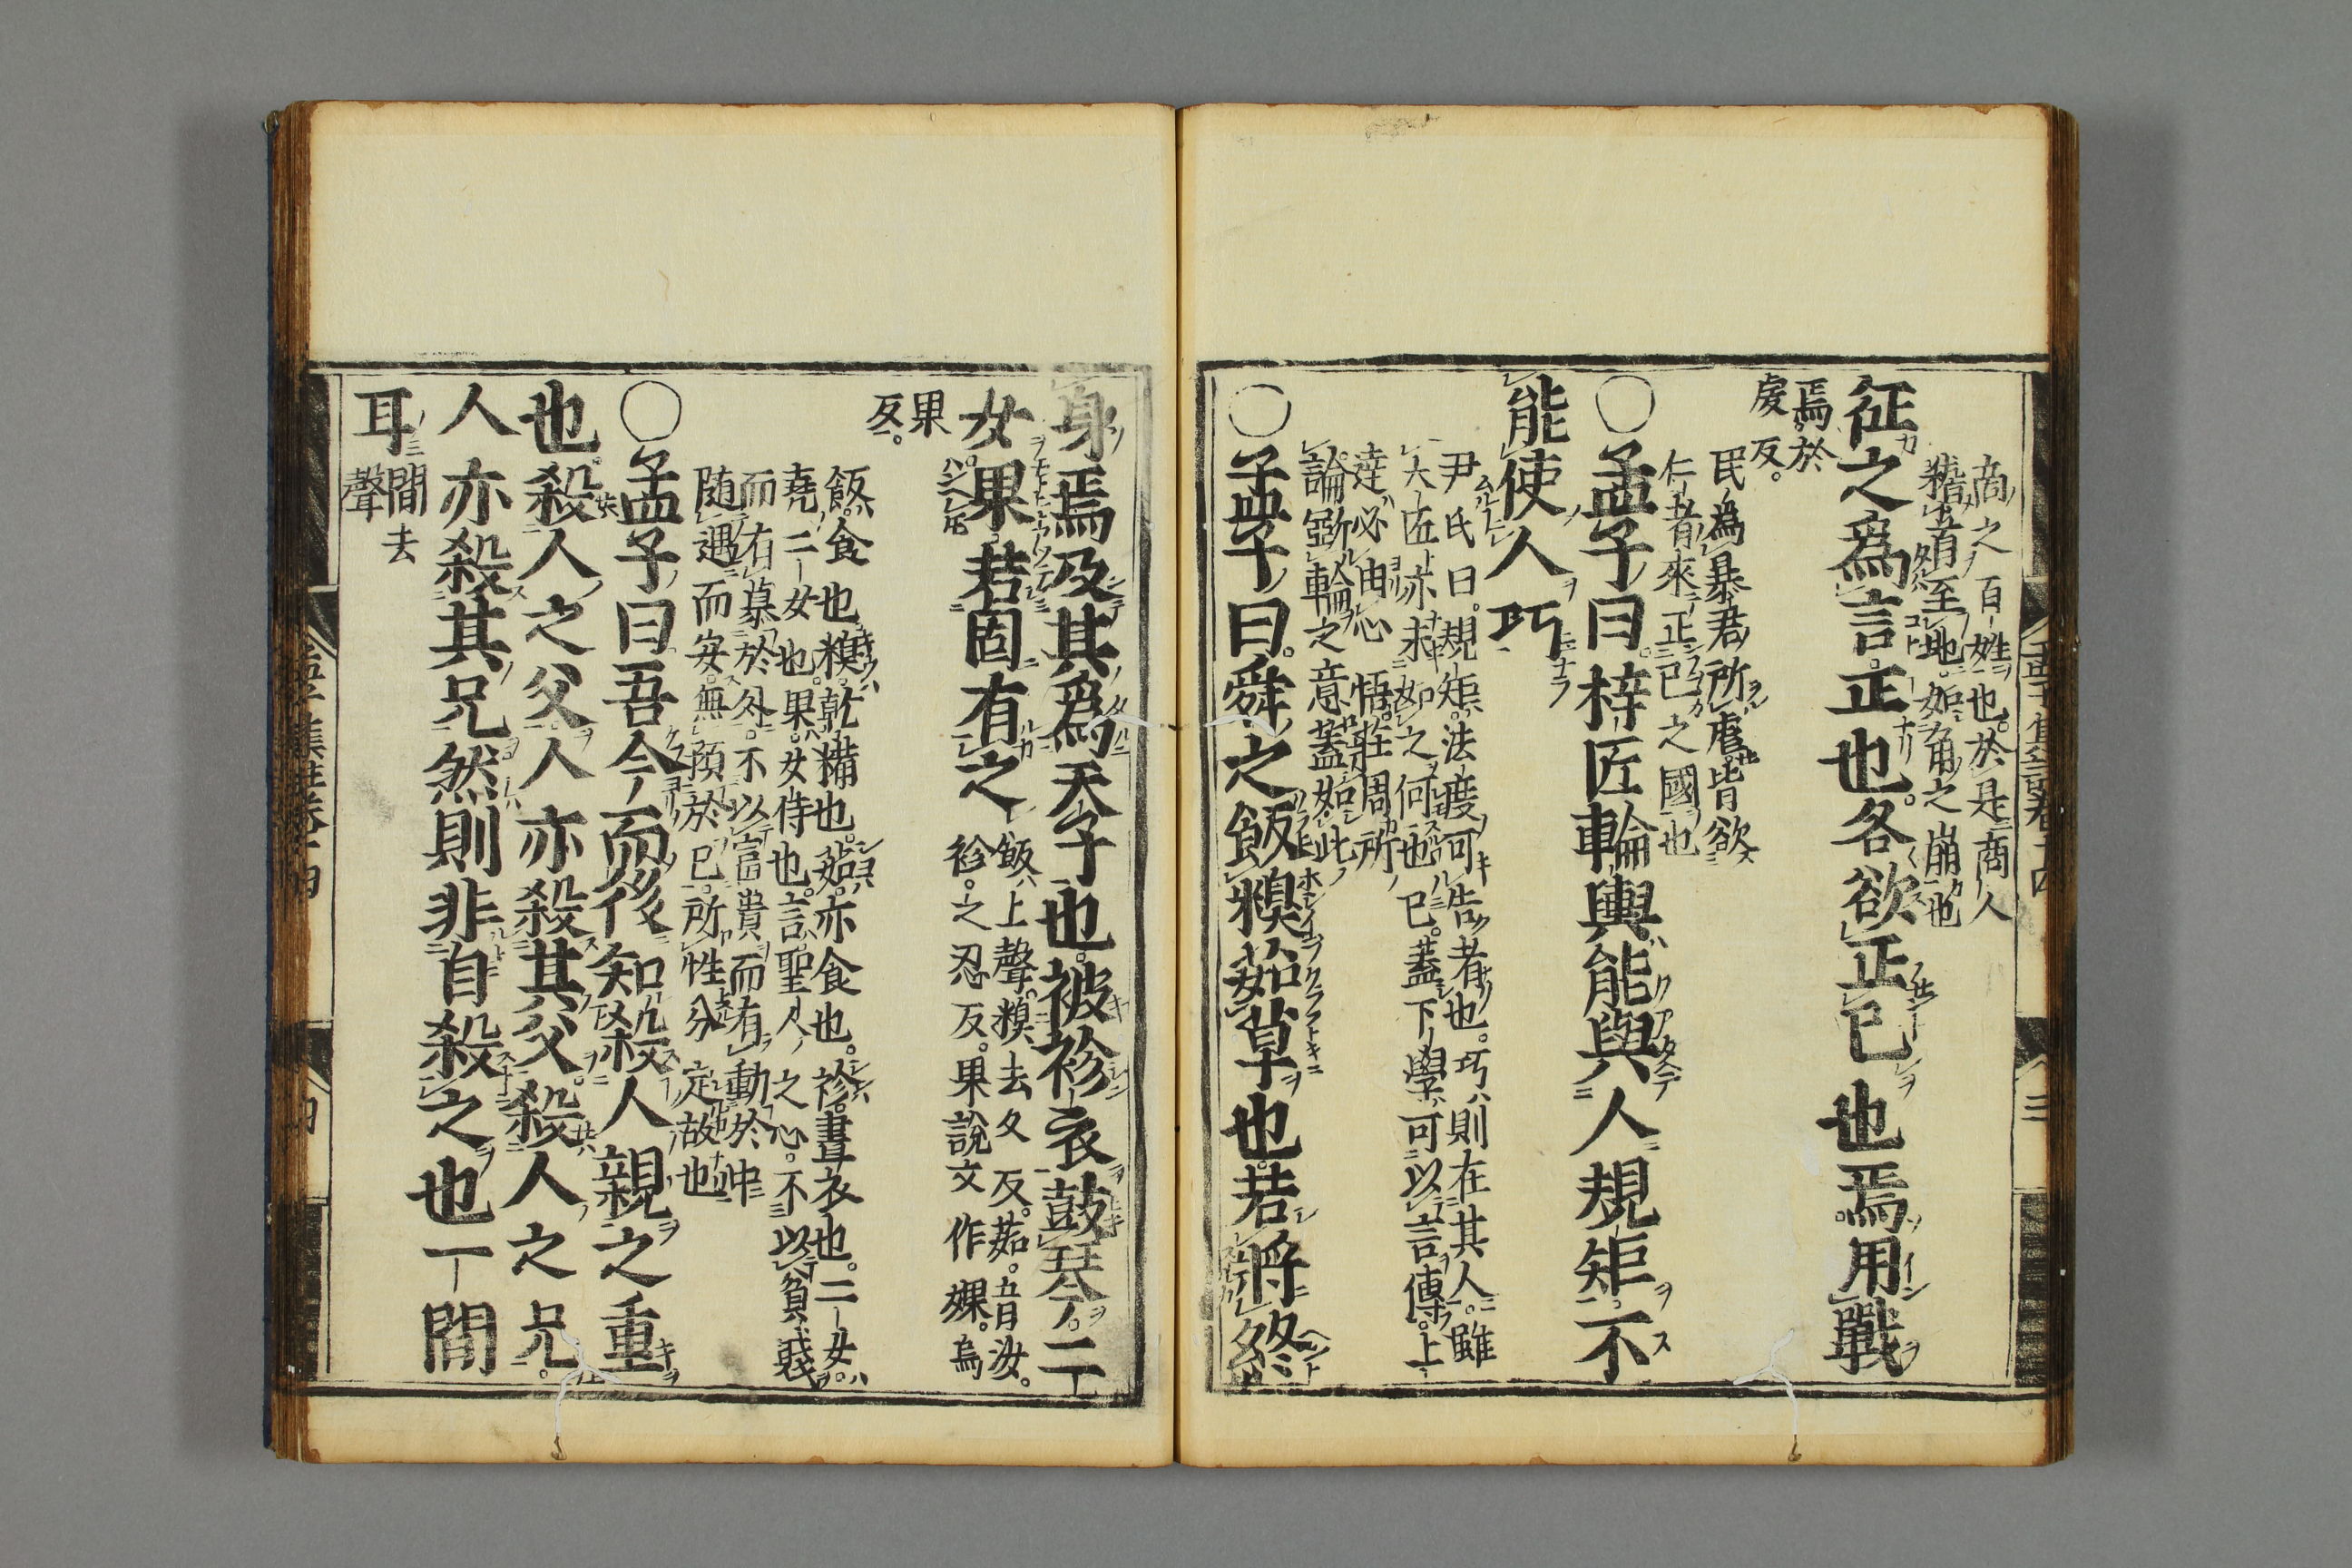 商之百姓也。於是商人
稽首至地。如角之崩也
征之爲言。正也。各欲正己也。焉用戰
焉。於
虔反。
民爲暴君所虐。皆欲
仁者來正己之國也
○孟子曰。梓匠輪輿。能與人規矩。不
能使人巧
尹氏曰。規矩。法度可告者也。巧則在其人。雖
大匠亦末如之何也已。蓋下學可以言傳。上
達必由心悟。莊周所
論斲輪之意。蓋如此
○孟子曰。舜之飯糗茹草也。若將終
身焉。及其爲天子也。被袗衣。鼓琴。二
女果。若固有之
飯上聲。糗去久反。茹。音汝。
袗。之忍反。果說文作婐。烏
果
反。
飯。食也。糗。乾糒也。茹。亦食也。袗。畫衣也。二女。
堯二女也。果。女侍也。言聖人之心。不以貧賤
而有慕於外。不以富貴而有動於中
随遇而安。無預於己。所性分定故也
○孟子曰。吾今而後知殺人親之重
也。殺人之父。人亦殺其父。殺人之兄。
人亦殺其兄。然則非自殺之也一間
耳
間去
聲
孟子集註卷十四
三
孟子集註卷十四
四